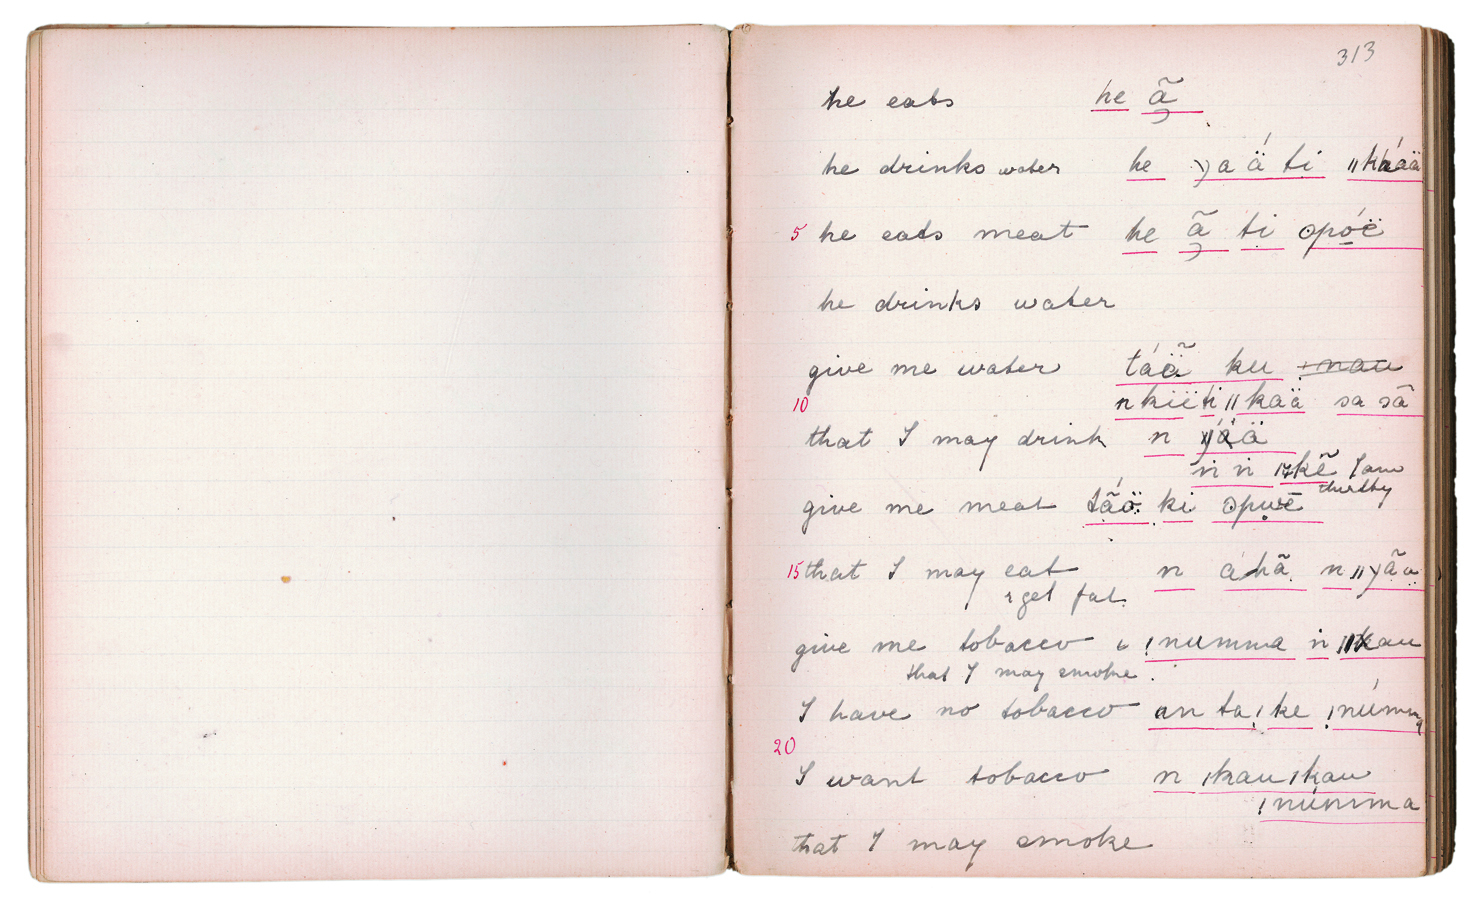 313
he eats he ã
he drinks water he ) a ä́ ti ǁkáää
5 he eats meat he ã ti ɔpóë
he drinks water
give me water táä̃ ku !nau
10 nkiëti ǁkaä sa sā
that I may drink n
n̈ n̈ kẽ I am
thirsty
give me meat ki ɔpwē
15 that I may eat n áhã n
& get fat.
give me tobacco !numma n̈ ǁkau
that I may smoke.
I have no tobacco an ta !ke !númma
20
I want tobacco n ǀkauǀkau
!númma
that I may smoke